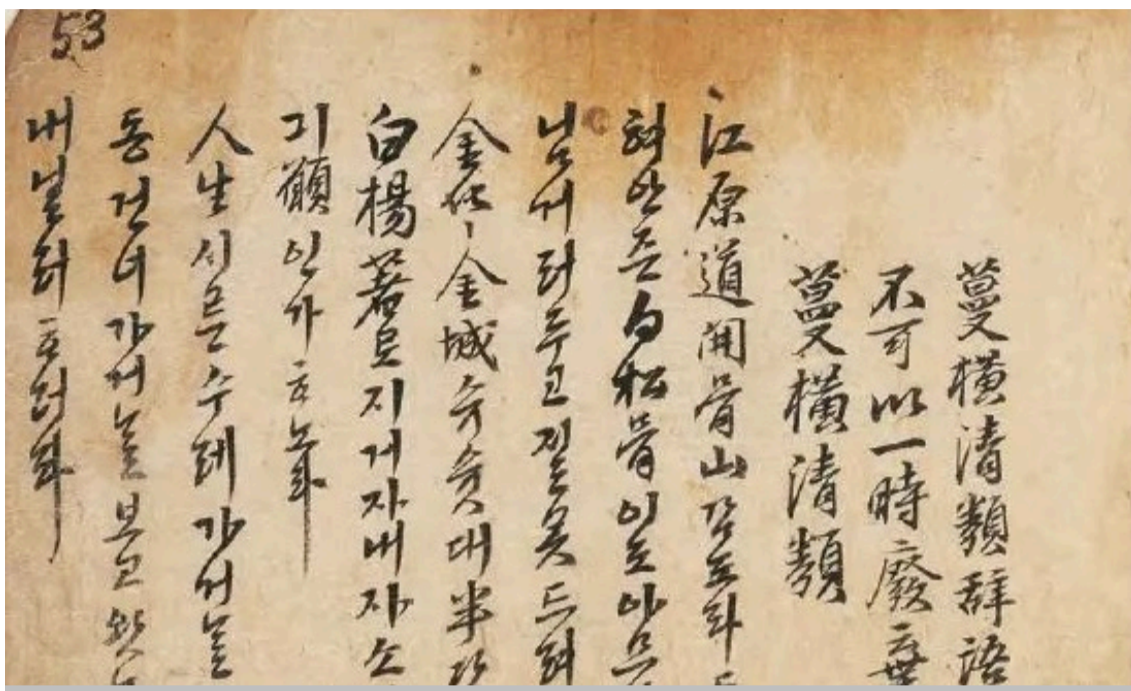 53
蔓橫清類辭語
不可以一時廢棄
蔓橫清類
江原道開骨山감도라
혀안즌白松骨이도아므
님거러두고질못드려
金化ㅣ金城슈슛대半
白楊箸로지거자내자소
긔願인가ᄒᆞ노라
人生시른수레가거늘
동건너가거늘보고왓
내닐러ᄒᆞ더라